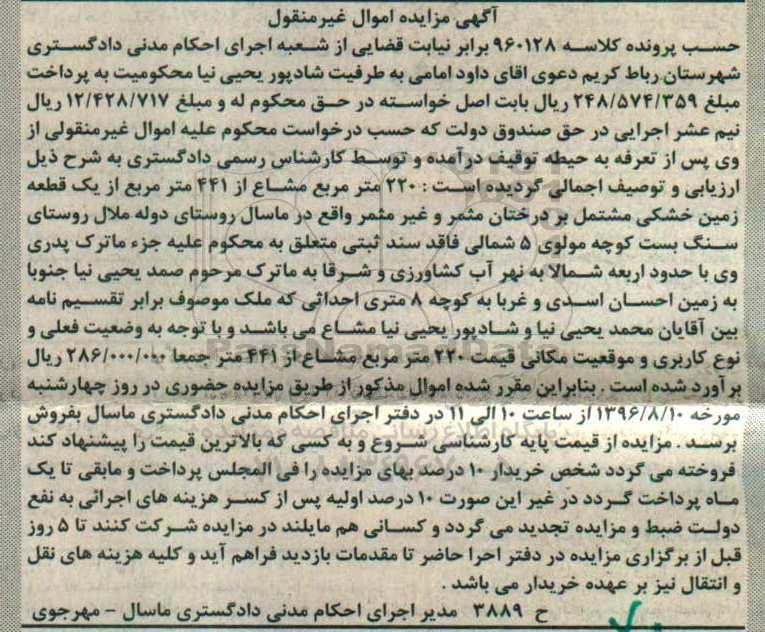 آگهی مزایده اموال غیرمنقول
حسب پرونده کلاسه ۹۶۰۱۲۸ برابر نیابت قضایی از شعبه اجرای احکام مدنی دادگستری
شهرستان رباط کریم دعوی اقای داود امامی به طرفیت شادپور یحیی نیا محکومیت به پرداخت
مبلغ ۲۴۸/۵۷۴/۳۵۹ ریال بابت اصل خواسته در حق محکوم له و مبلغ ۱۲/۴۲۸/۷۱۷ ریال
نیم عشر اجرایی در حق صندوق دولت که حسب درخواست محکوم علیه اموال غیرمنقولی از
وی پس از تعرفه به حیطه توقیف درآمده و توسط کارشناس رسمی دادگستری به شرح ذیل
ارزیابی و توصیف اجمالی گردیده است : ۲۲۰ متر مربع مشاع از ۴۴۱ متر مربع از یک قطعه
زمین خشکی مشتمل بر درختان مثمر و غیر مثمر واقع در ماسال روستای دوله ملال روستای
سنگ بست کوچه مولوی ۵ شمالی فاقد سند ثبتی متعلق به محکوم علیه جزء ماترک پدری
وی با حدود اربعه شمالا به نهر آب کشاورزی و شرقا به ماترک مرحوم صمد یحیی نیا جنوبا
به زمین احسان اسدی و غربا به کوچه ۸ متری احداثی که ملک موصوف برابر تقسیم نامه
بین آقایان محمد یحیی نیا و شادپور یحیی نیا مشاع می باشد و با توجه به وضعیت فعلی و
نوع کاربری و موقعیت مکانی قیمت ۲۲۰ متر مربع مشاع از ۴۴۱ متر جمعا ۲۸۶/۰۰۰/۰۰۰ ریال
برآورد شده است . بنابراین مقرر شده اموال مذکور از طریق مزایده حضوری در روز چهارشنبه
مورخه ۱۳۹۶/۸/۱۰ از ساعت ۱۰ الی ۱۱ در دفتر اجرای احکام مدنی دادگستری ماسال بفروش
برسد . مزایده از قیمت پایه کارشناسی شروع و به کسی که بالاترین قیمت را پیشنهاد کند
فروخته می گردد شخص خریدار ۱۰ درصد بهای مزایده را فی المجلس پرداخت و مابقی تا یک
ماه پرداخت گردد در غیر این صورت ۱۰ درصد اولیه پس از کسر هزینه های اجرائی به نفع
دولت ضبط و مزایده تجدید می گردد و کسانی هم مایلند در مزایده شرکت کنند تا ۵ روز
قبل از برگزاری مزایده در دفتر احرا حاضر تا مقدمات بازدید فراهم آید و کلیه هزینه های نقل
و انتقال نیز بر عهده خریدار می باشد .
ح ۳۸۸۹ مدیر اجرای احکام مدنی دادگستری ماسال - مهرجوی